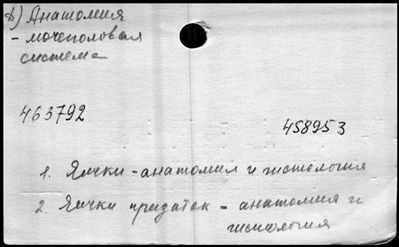 А) Анатомия
- мочеполовая
система
463792
458953
1. Яички - анатомия и гистология
2. Яички придаток - анатомия и
гистология